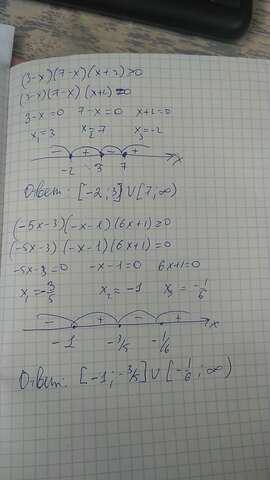 (3-x)(7-x)(x+2)≥0
(3-x)(7-x)(x+2)=0
3-x=0 7-x=0 x+2=0
x₁=3 x₂=7 x₃=-2
- + - + x
-2 3 7
Ответ: [-2;3]∪[7;∞)
(-5x-3)(-x-1)(6x+1)≥0
(-5x-3)(-x-1)(6x+1)=0
-5x-3=0 -x-1=0 6x+1=0
x₁=-3/5 x₂=-1 x₃=-1/6
- + - + x
-1 -3/5 -1/6
Ответ: [-1;-3/5]∪[-1/6;∞)